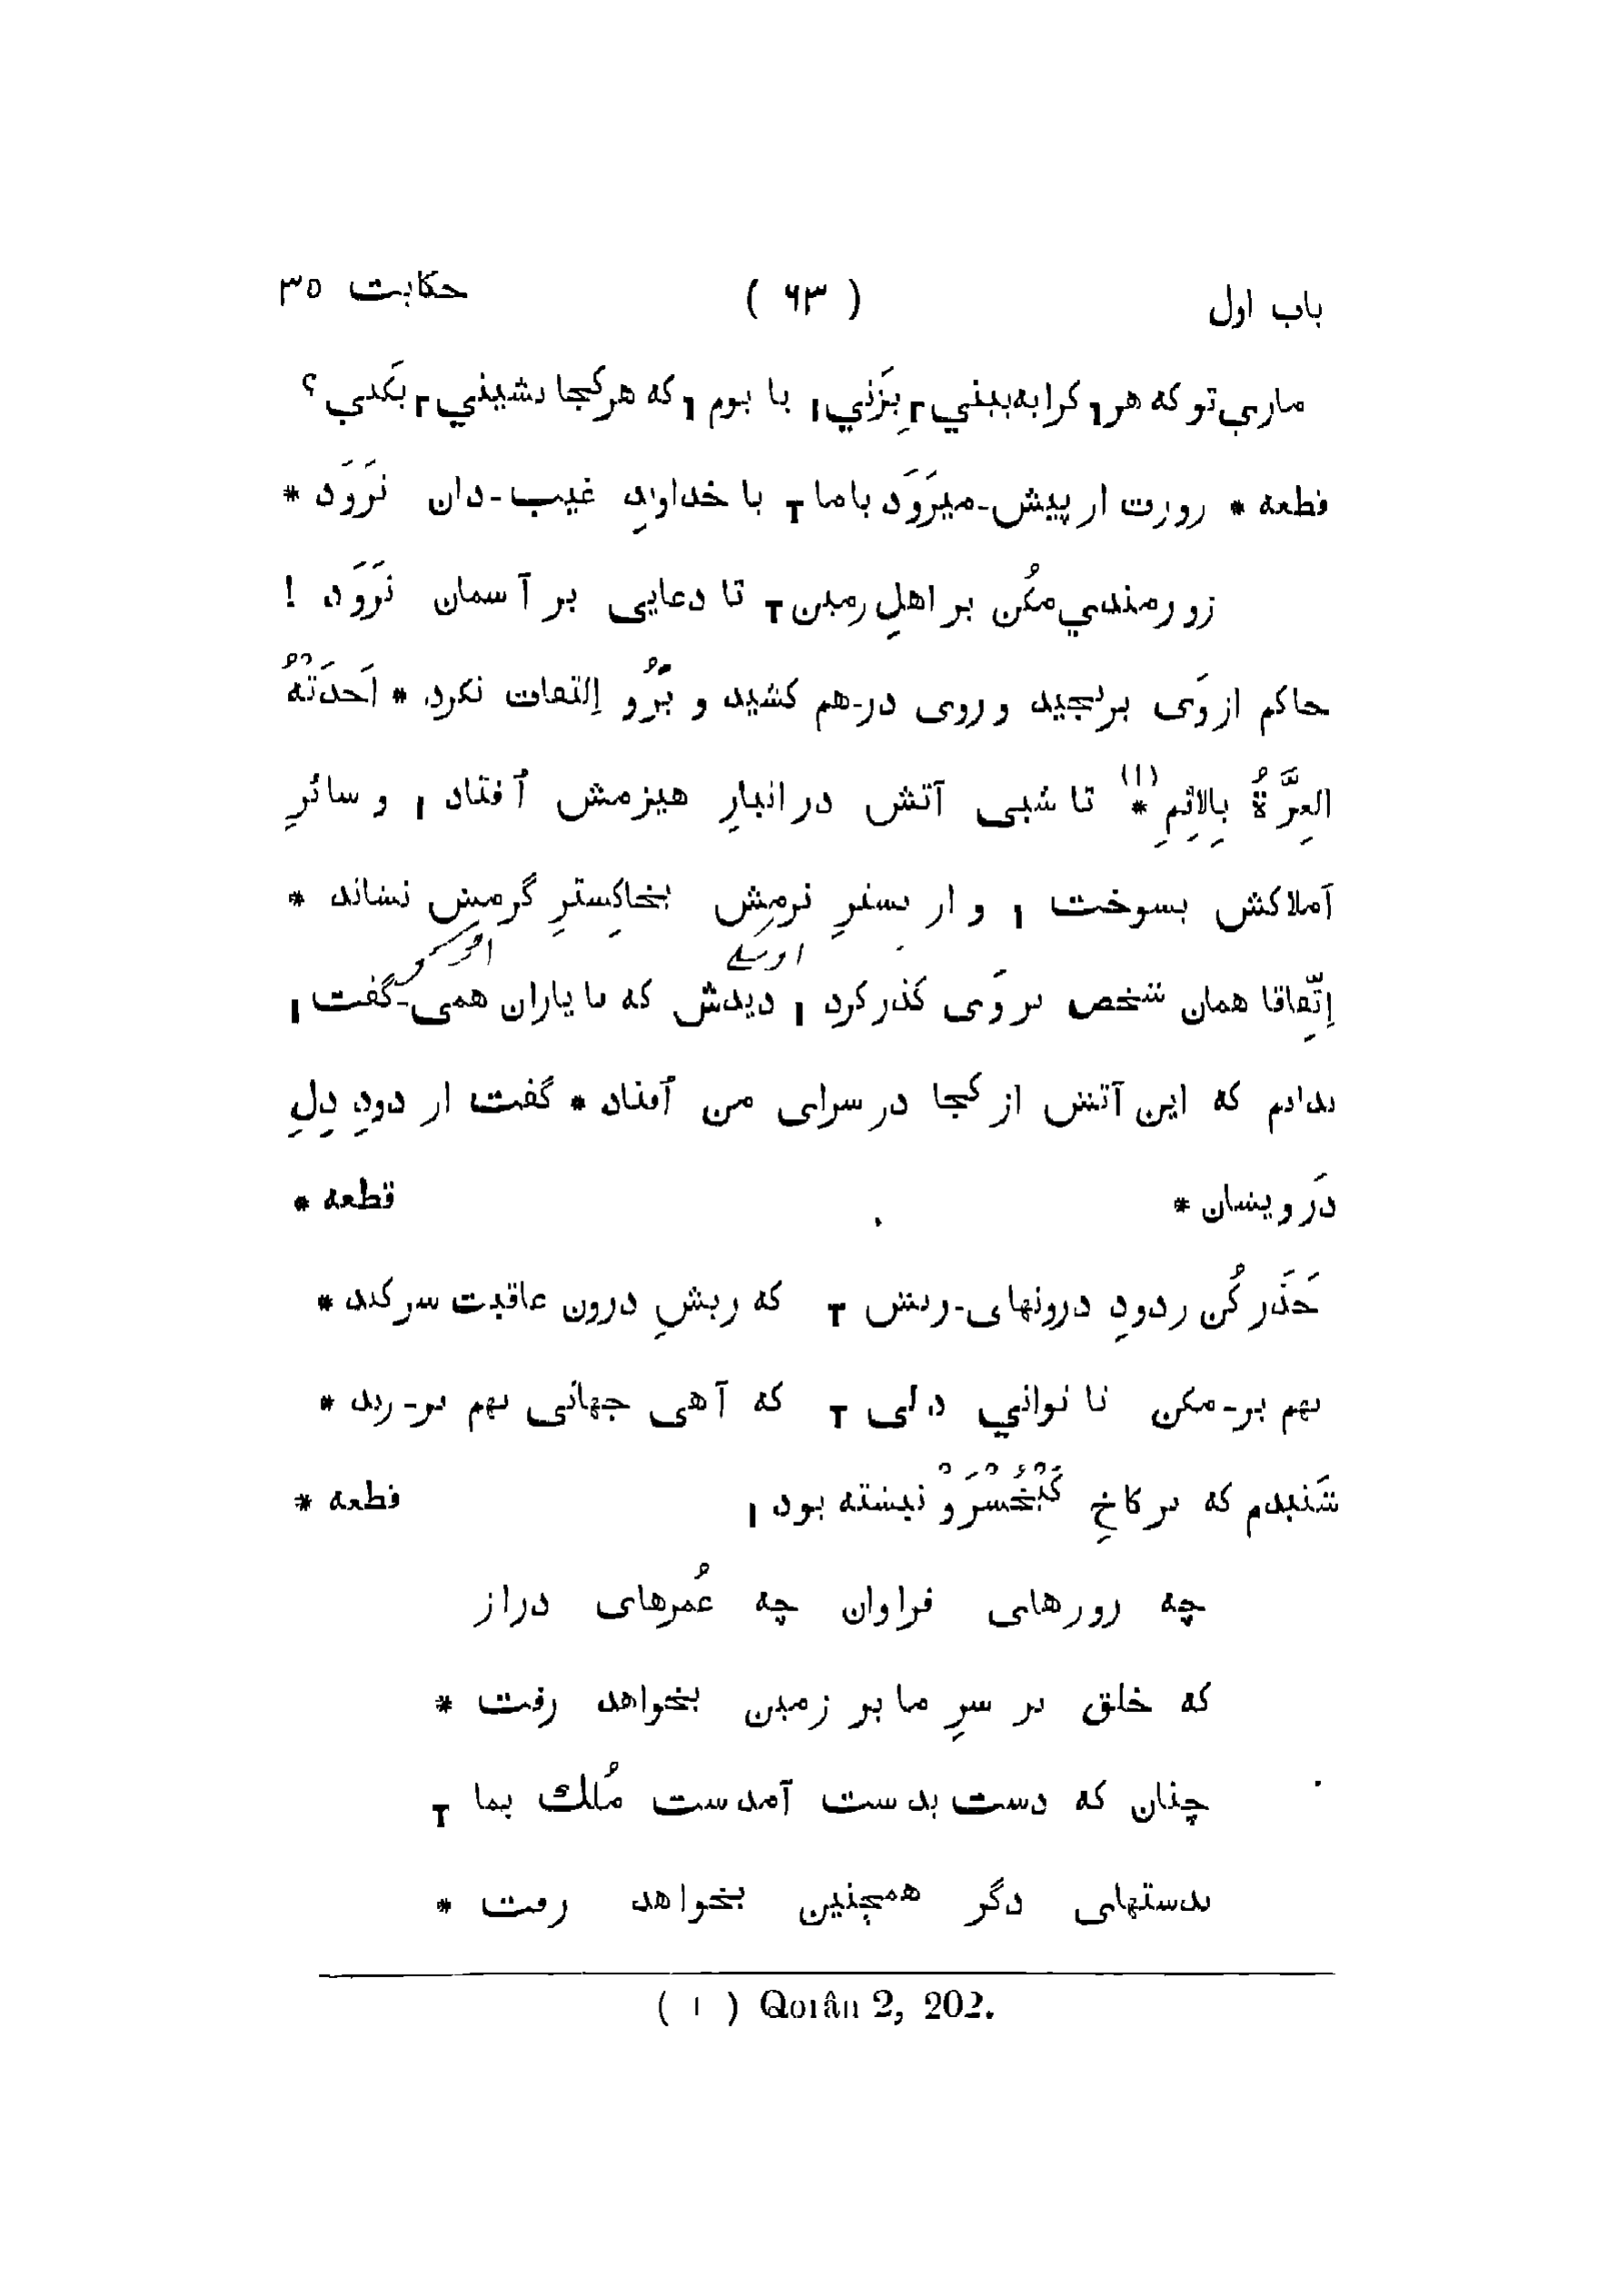 باب اول ( ۶۳ ) حکایت ۳۵
ماري تو که هر کرا به‌بیني بِزَني یا بوم که هرکجا نشیني بَکَني ؟
قطعه * زورت ار پیش-میرَوَد باما با خداوندِ غیب-دان نرَوَد *
زورمندي مکُن بر اهلِ زمین تا دعایی بر آسمان نرَوَد !
حاکم از وَی برنجید و روی در-هم کشید و بَرُو اِلتفات نکرد * اَخَذَتْهُ
العِزَّةُ بِالاِثمِ * (۱) تا شبی آتش در انبارِ هیزمش اُفتاد و سائرِ
املاکش بسوخت و از بسترِ نرمش بخاکِسترِ گرمش نشاند *
اِتّفاقا همان شخص بر وَی گذر کرد دیدش که با یاران همی-گفت
ندانم که این آتش از کجا در سرای من اُفتاد * گفت از دودِ دِلِ
دَرویشان * قطعه *
حَذَر کُن ز دودِ درونهای-ریش که ریشِ درون عاقبت سر کند *
بهم بر-مکن تا تواني دلی که آهی جهانی بهم بر-زند *
شَنیدم که بر کاخِ کَیْخُسْرَوْ نبشته بود قطعه *
چه روزهای فراوان چه عُمرهای دراز
که خلق بر سرِ ما بر زمین بخواهد رفت *
چنان که دست بدست آمدست مُلك بما
بدستهای دگر همچنین بخواهد رفت *
( ۱ ) Qorân 2, 202.